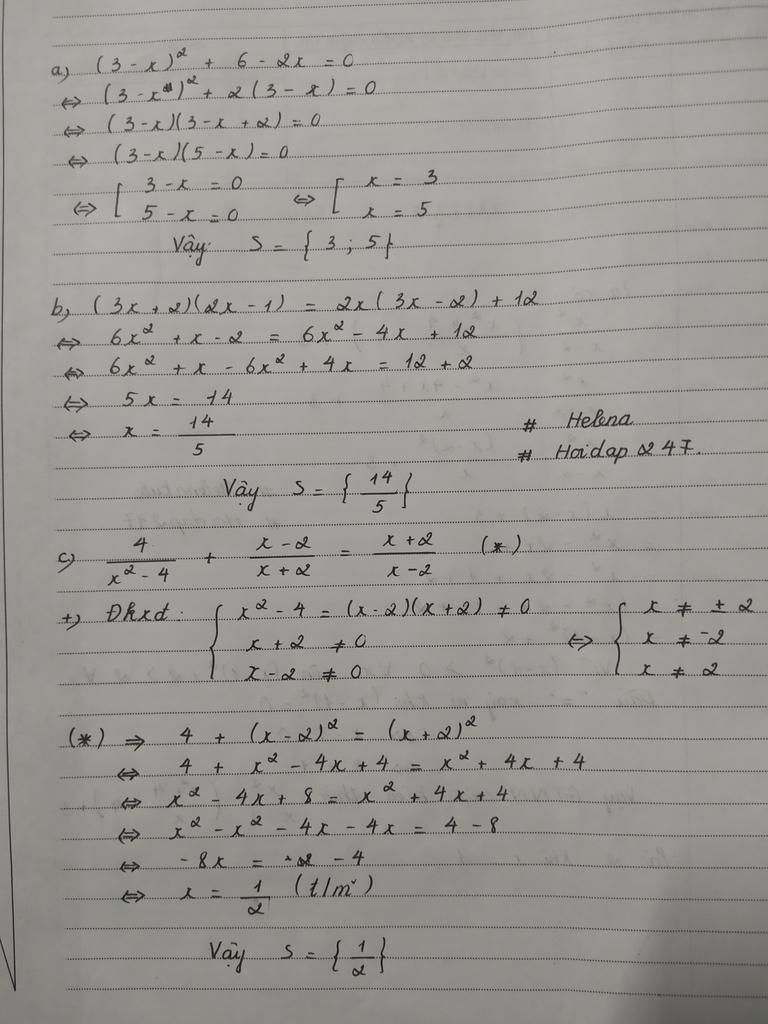 a) (3 - x)² + 6 - 2x = 0
⇔ (3 - x)² + 2(3 - x) = 0
⇔ (3-x)(3-x+2) = 0
⇔ (3-x)(5-x) = 0
⇔ [ 3-x = 0 ⇔ [ x = 3
5-x = 0 x = 5
Vậy: S = { 3 ; 5}
b) (3x+2)(2x-1) = 2x(3x-2) + 12
⇔ 6x² + x - 2 = 6x² - 4x + 12
⇔ 6x² + x - 6x² + 4x = 12 + 2
⇔ 5x = 14
⇔ x = 14/5
# Helena
# Hoidap 247.
Vậy S = { 14/5 }
c) 4/(x²-4) + (x-2)/(x+2) = (x+2)/(x-2) (*)
+) Đkxđ: { x² - 4 = (x-2)(x+2) ≠ 0 ⇔ { x ≠ ± 2
x + 2 ≠ 0 x ≠ -2
x - 2 ≠ 0 x ≠ 2
(*) ⇒ 4 + (x-2)² = (x+2)²
⇔ 4 + x² - 4x + 4 = x² + 4x + 4
⇔ x² - 4x + 8 = x² + 4x + 4
⇔ x² - x² - 4x - 4x = 4 - 8
⇔ -8x = -4
⇔ x = 1/2 (t/m)
Vậy S = { 1/2 }